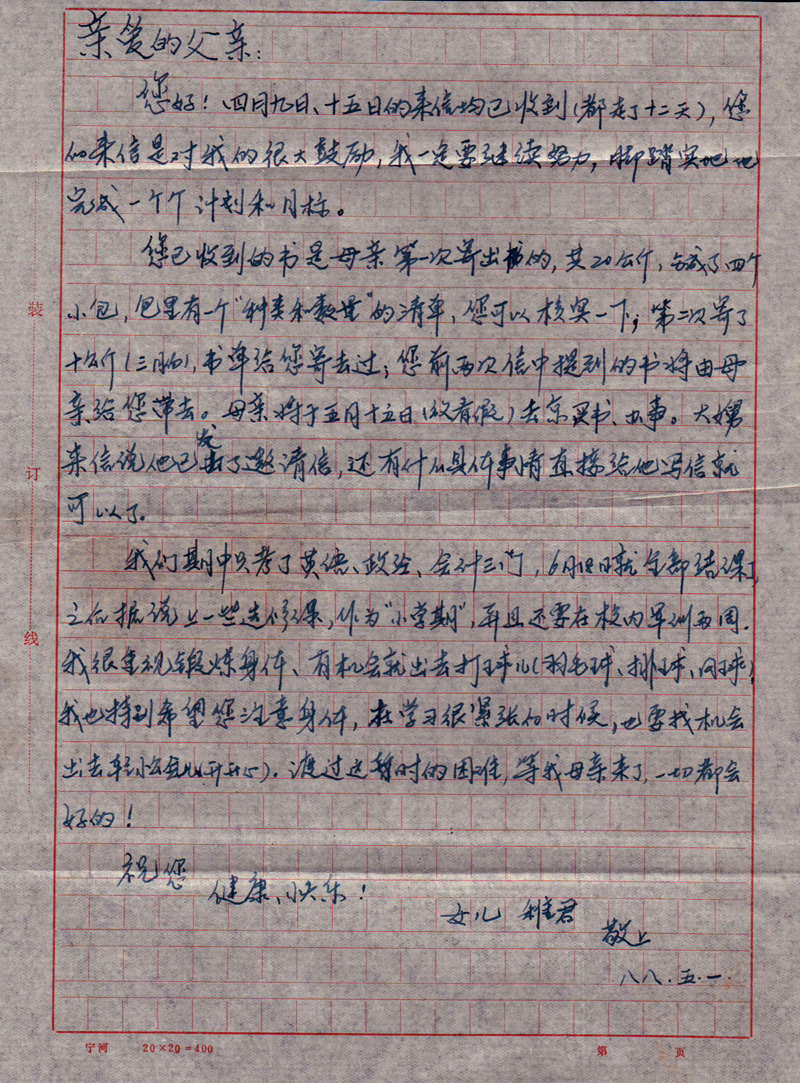 亲爱的父亲：
您好！四月九日、十五日的来信均已收到（都走了十二天），您
的来信是对我的很大鼓励，我一定要继续努力，脚踏实地地
完成一个个计划和目标。
您已收到的书是母亲第一次寄出的，共20公斤，包成了四个
小包，包里有一个“种类和数量”的清单，您可以核实一下；第二次寄了
十公斤（三月份），书单给您寄去过；您前两次信中提到的书将由母
亲给您带去。母亲将于五月十五日（放春假）去京买书、办事。大舅
来信说他已发了邀请信，还有什么具体事情直接给他写信就
可以了。
我们期中只考了英语、政经、会计三门，6月18日就全部结课，
之后据说上一些选修课，作为“小学期”，并且还要在校内军训两周。
我很重视锻炼身体、有机会就出去打球儿（羽毛球、排球、网球），
我也特别希望您注意身体，在学习很紧张的时候，也要找机会
出去轻松会儿（开开心）。渡过这暂时的困难，等我母亲来了，一切都会
好的！
祝您
健康、快乐！
女儿 君
敬上
八八.五.一.
装
订
线
宁河 20×20=400
第 页